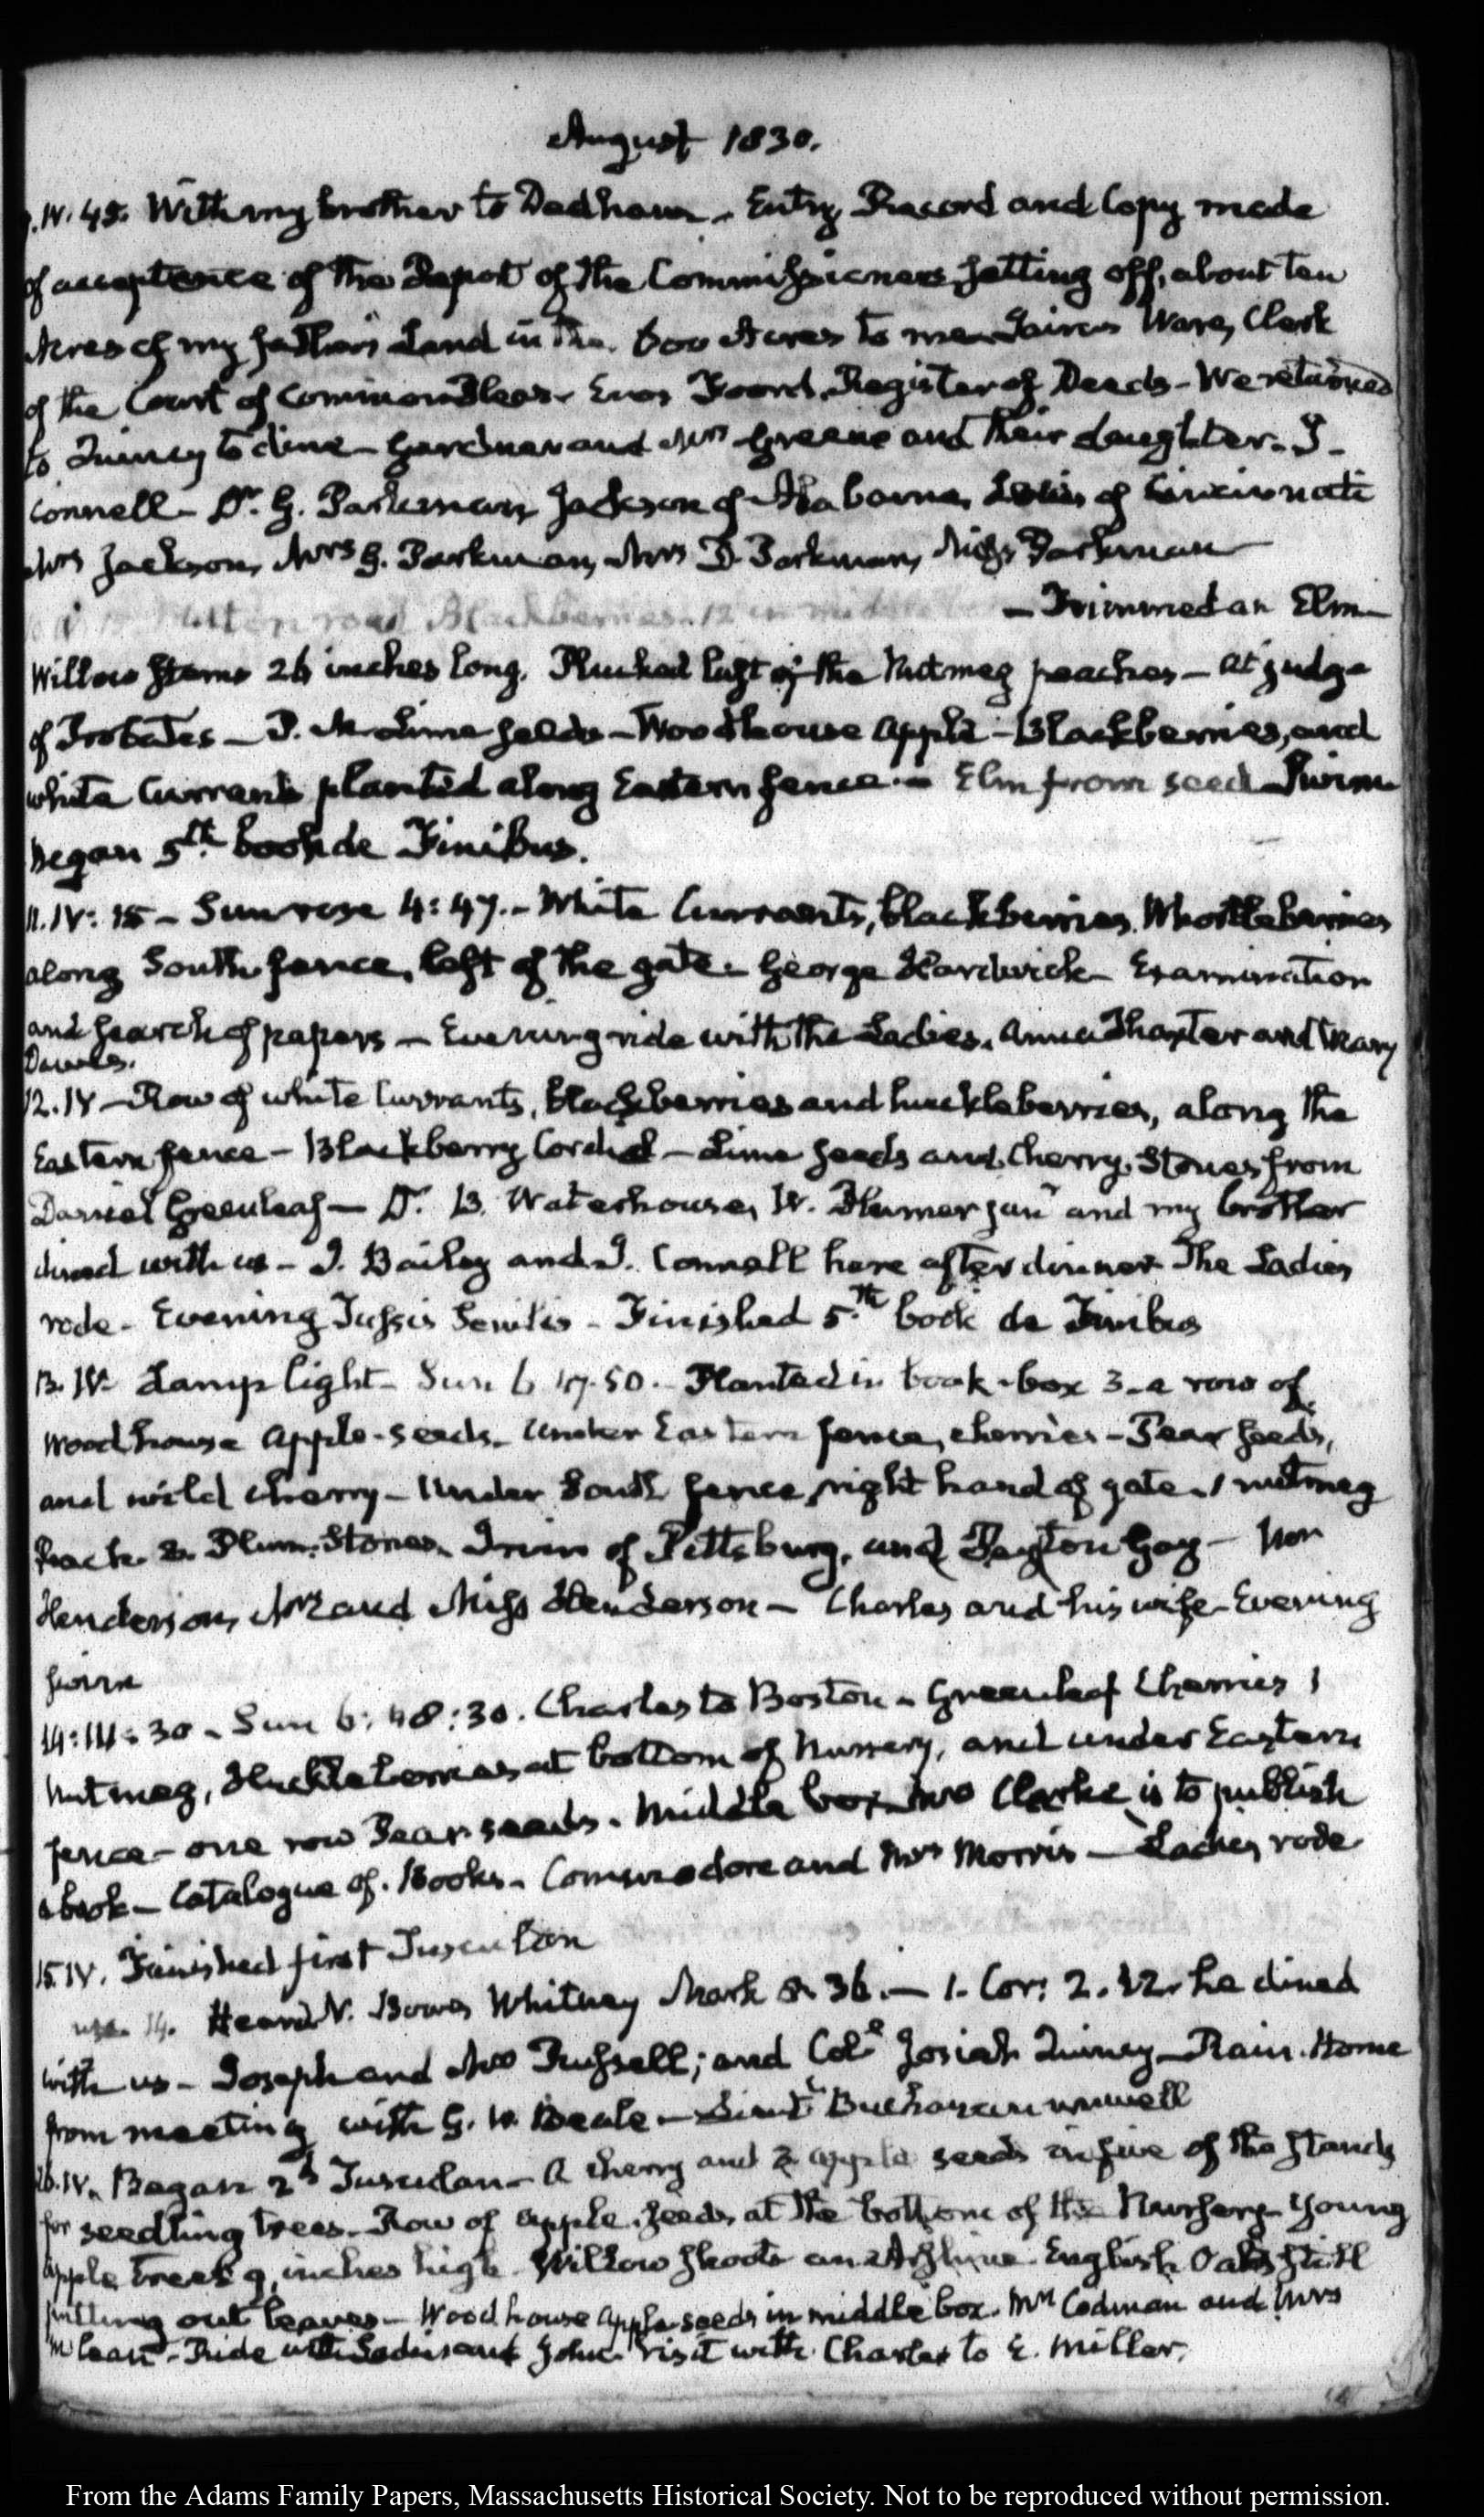 August 1830.
IV. 45. With my brother to Dedham - Entry, Record and Copy made
of acceptance of the Report of the Commissioners setting off, about ten
Acres of my father's Land in the 600 Acres to me Jairus Ware, Clerk
of the Court of Common Pleas - Enos Foord, Register of Deeds - We returned
to Quincy to dine - Gardner and Mrs Greene and their daughter - J.
Connell - Dr. G. Parkman, Jackson of Alabama, of Cincinnati
Mrs Jackson, Mrs G. Parkman, Mrs D. Parkman, Miss Parkman
road Blackberries. 12 in middle - Trimmed an Elm -
Willow stems 26 inches long. Plucked last of the Nutmeg peaches - at judge
of Probates - Lime seeds - Woodhouse apple - Blackberries, and
white Currants planted along Eastern fence - Elm from seed - Swim
began 5th. book de Finibus.
11. IV: 15 - Sun rose 4:47. - White Currants, blackberries, Whortleberries
along South fence, left of the gate - George Hardwick - Examination
and search of papers - Evening ride with the Ladies. Anna Thaxter and Mary
12. IV - Row of white Currants, blackberries and huckleberries, along the
Eastern fence - Blackberry Cordial - Lime seeds and Cherry Stones from
Daniel Greenleaf - Dr. B. Waterhouse, W. Plumer junr and my brother
dined with us - J. Bailey and J. Connell here after dinner The Ladies
rode - Evening Tussis Senilis - Finished 5.th book de Finibus
13. IV Lamp light - Sun 6 47.50. - Planted in book-box 3 - a row of
Woodhouse apple-seeds. Under Eastern fence, cherries - Pear seeds,
and wild cherry - Under South fence, right hand of gate - 1 nutmeg
Peach 2. Plum-Stones. Irwin of Pittsburg, and Payton Gay - Mr
Henderson, Mrs and Miss Henderson - Charles and his wife - Evening
swim
14: III: 30 - Sun 6: 48: 30. Charles to Boston - Greenleaf Cherries 1
nutmeg, Huckleberries at bottom of Nursery, and under Eastern
fence - one row Pear seeds. Middle box Mrs Clarke is to publish
a book - Catalogue of Books - Commodore and Mrs Morris - Ladies rode
15. IV. Finished first Tusculan
14. Heard N. Bowes Whitney Mark 8. 36. - 1. Cor: 2. 12. he dined
with us - Joseph and Mrs Russell; and Coll Josiah Quincy - Rain. Home
from meeting with G. W. Beale - Lieutt Buchanan unwell
16. IV. Began 2d Tusculan - A cherry and 2 apple seeds in five of the stands
for seedling trees. Row of apple-seeds, at the bottom of the Nursery - Young
apple trees 9 inches high. Willow shoots English Oaks still
putting out leaves - Woodhouse apple-seeds in middle box. Mrs Codman and Mrs
McLean - Ride with Ladies and John visit with Charles to E. Miller.
From the Adams Family Papers, Massachusetts Historical Society. Not to be reproduced without permission.